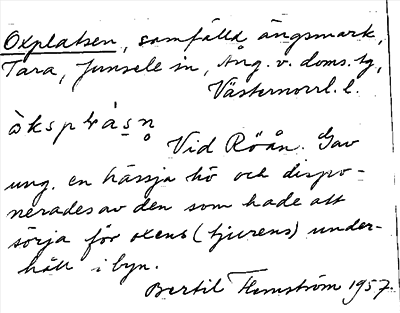 Oxplatsen, samfälld ängsmark,
Tara, Junsele sn, Ång. v. doms. tg,
Västernorrl. l.
òksplàsn̥
Vid Röån. Gav
ung. en hässja hö och dispo-
nerades av den som hade att
sörja för oxens (tjurens) under-
håll i byn.
Bertil Flemström 1957.